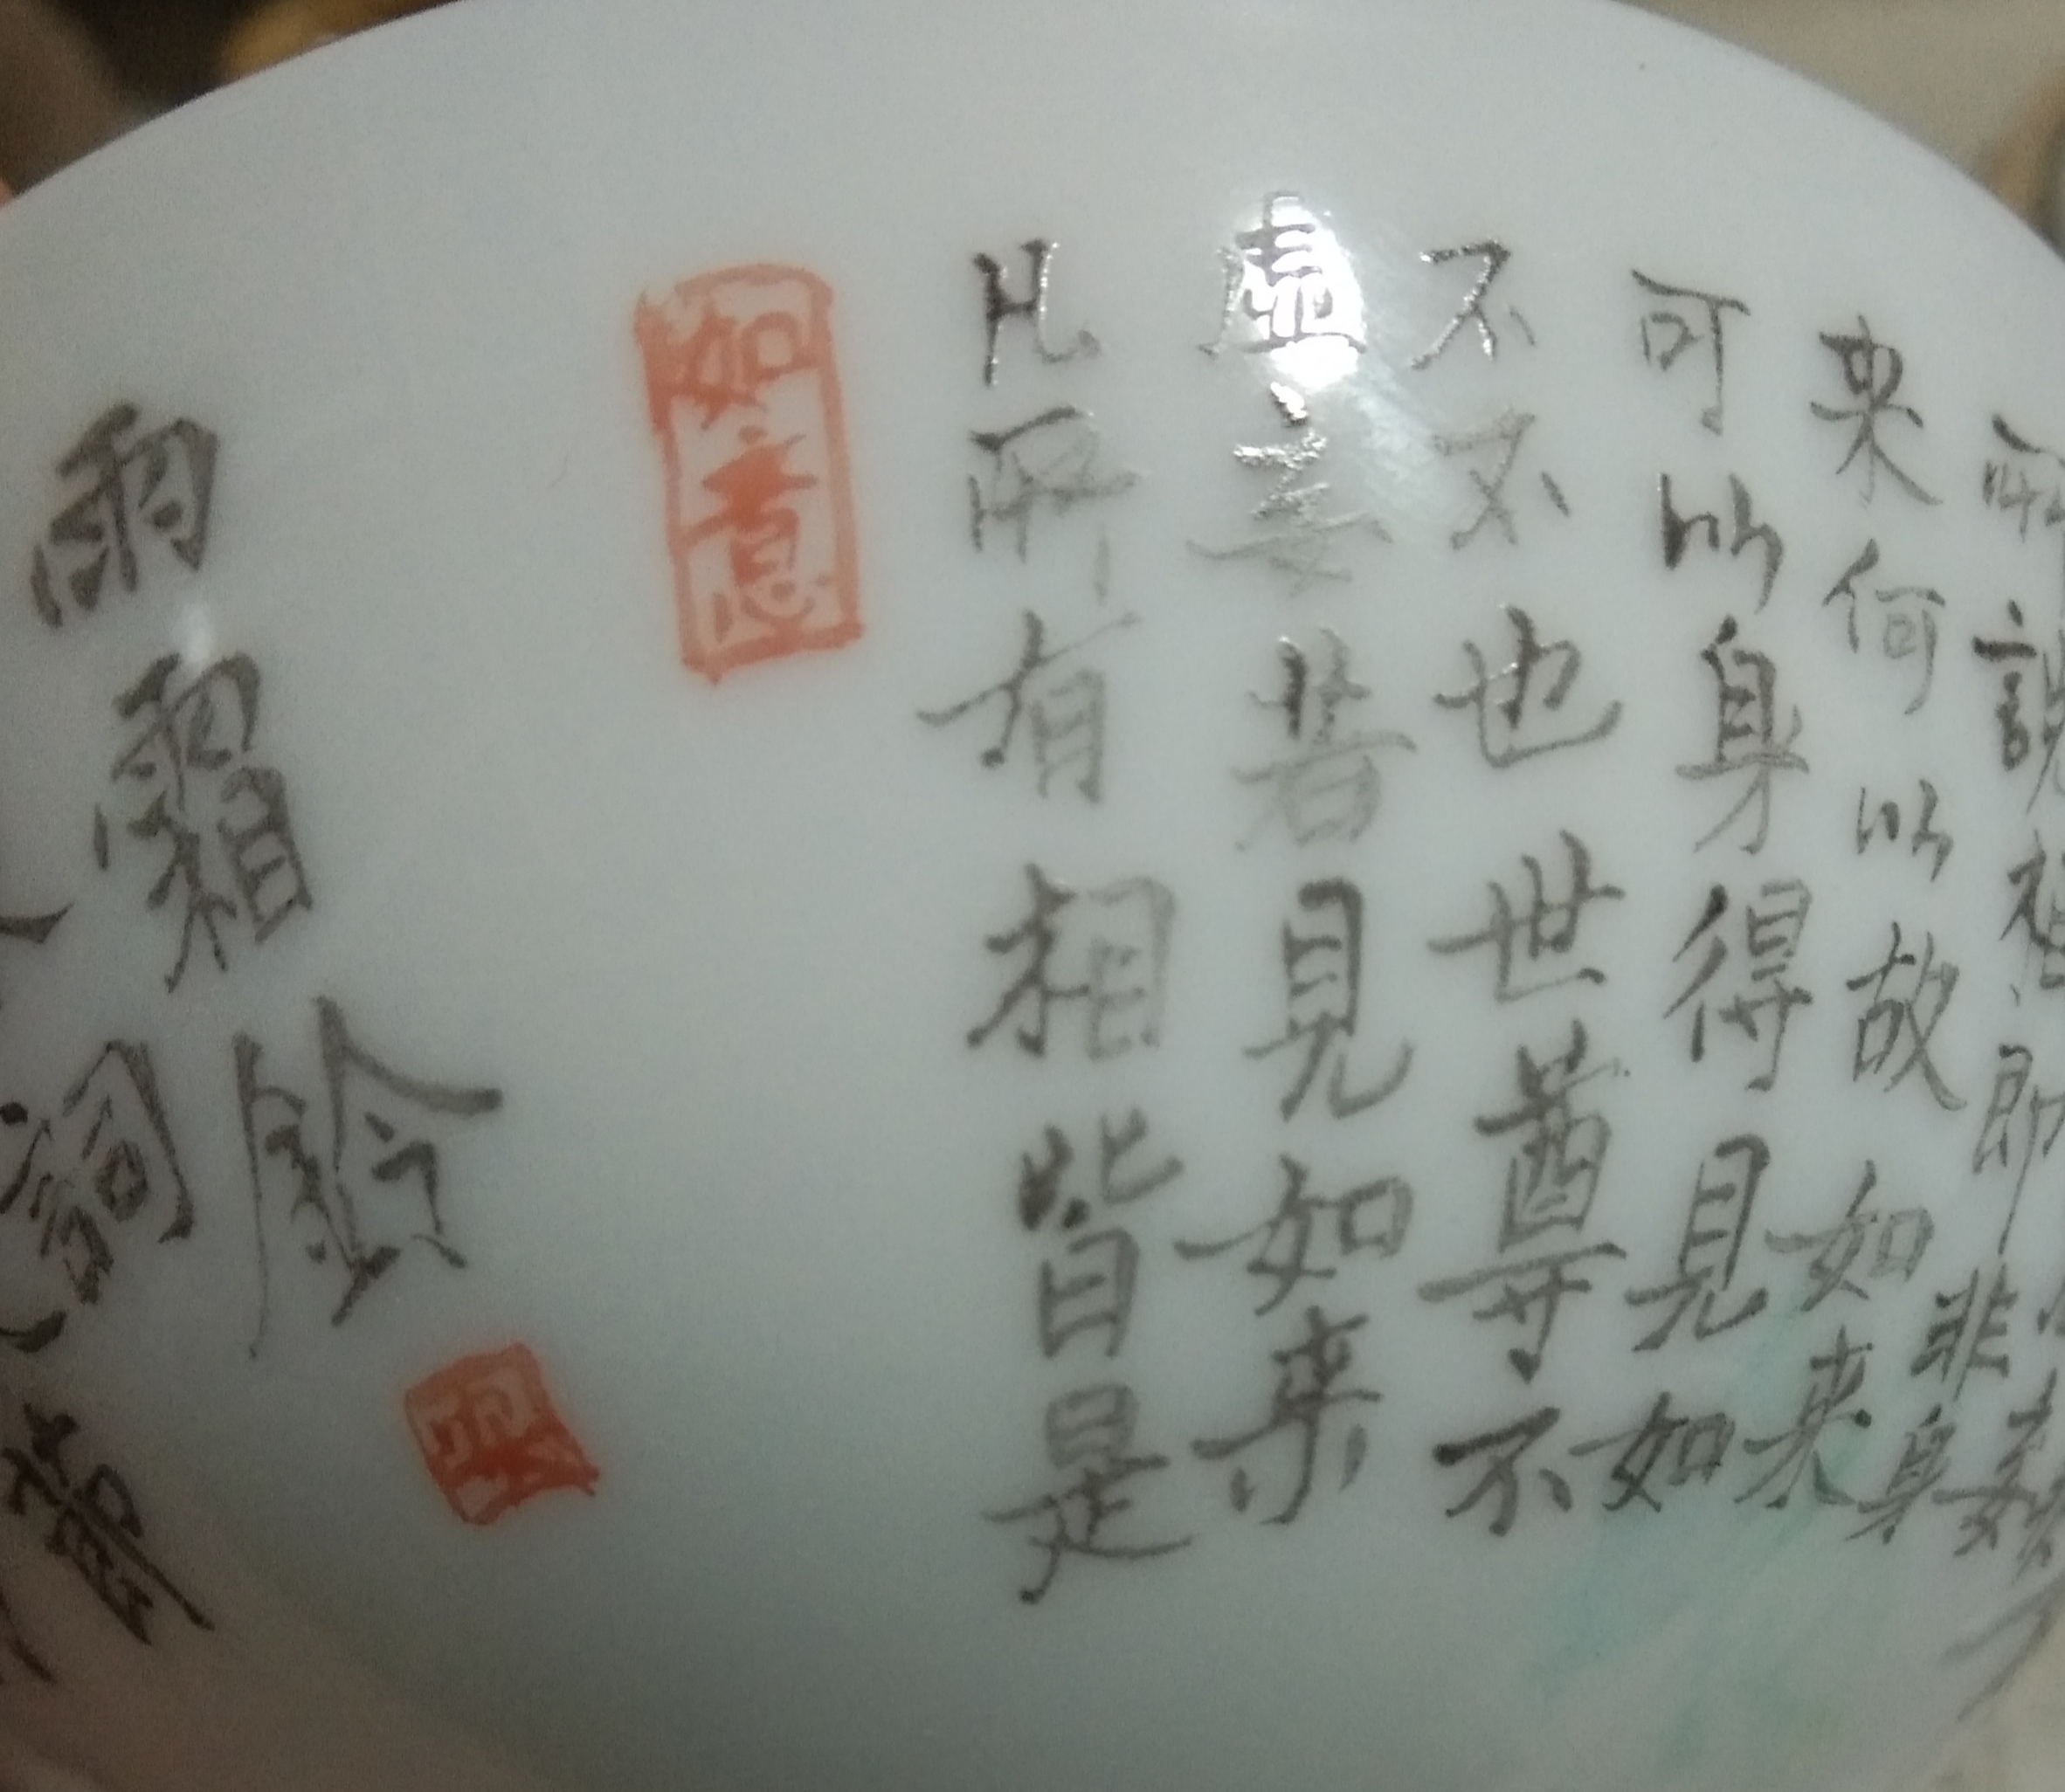 詞
雨霜鈴
如意
凡所有相皆是
虛妄若見如来
不不也世尊不
可以身得見如
来何以故如来
所說相即非身